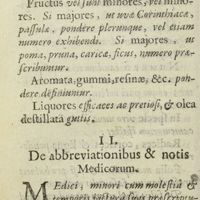 Fructus vel sunt minores, vel mino-
res. Si majores, ut uvæ Corinthiacæ,
passulæ, pondere plerunque, vel etiam
numero exhibendi. Si majores, ut
poma, pruna, caricæ, ficus, numero præ-
scribuntur.
Aromata, gummi, resinæ, &c. pon-
dere definiuntur.
Liquores efficaces ac pretiosi, & olea
destillata guttis.
II.
De abbreviationibus & notis
Medicorum.
Medici, minori cum molestia &
temporis jactura suas præscriptio-